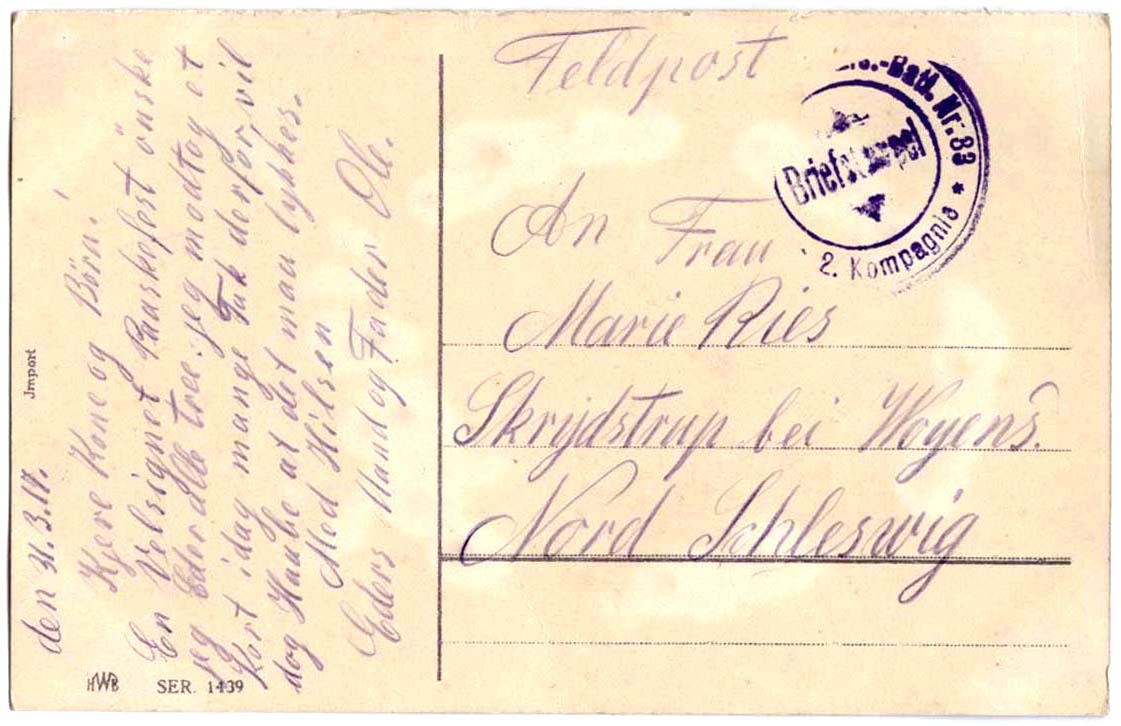 den 31.3.17.
Kjere Kone og Börn!
En Velsignet Paaskefest önske
jeg Eder alle tree. jeg modtog et
Kort idag mange Tak derfor, vil
dog Haabe at det maa lykkes.
Med Hilsen
Eders Mand og Fader Ole.
Jmport
HWB SER. 1439
Feldpost
-Batl. Nr. 83
Briefstempel
2. Kompagnie
An Frau
Marie Ries
Skrydstrup bei Woyens.
Nord Schleswig